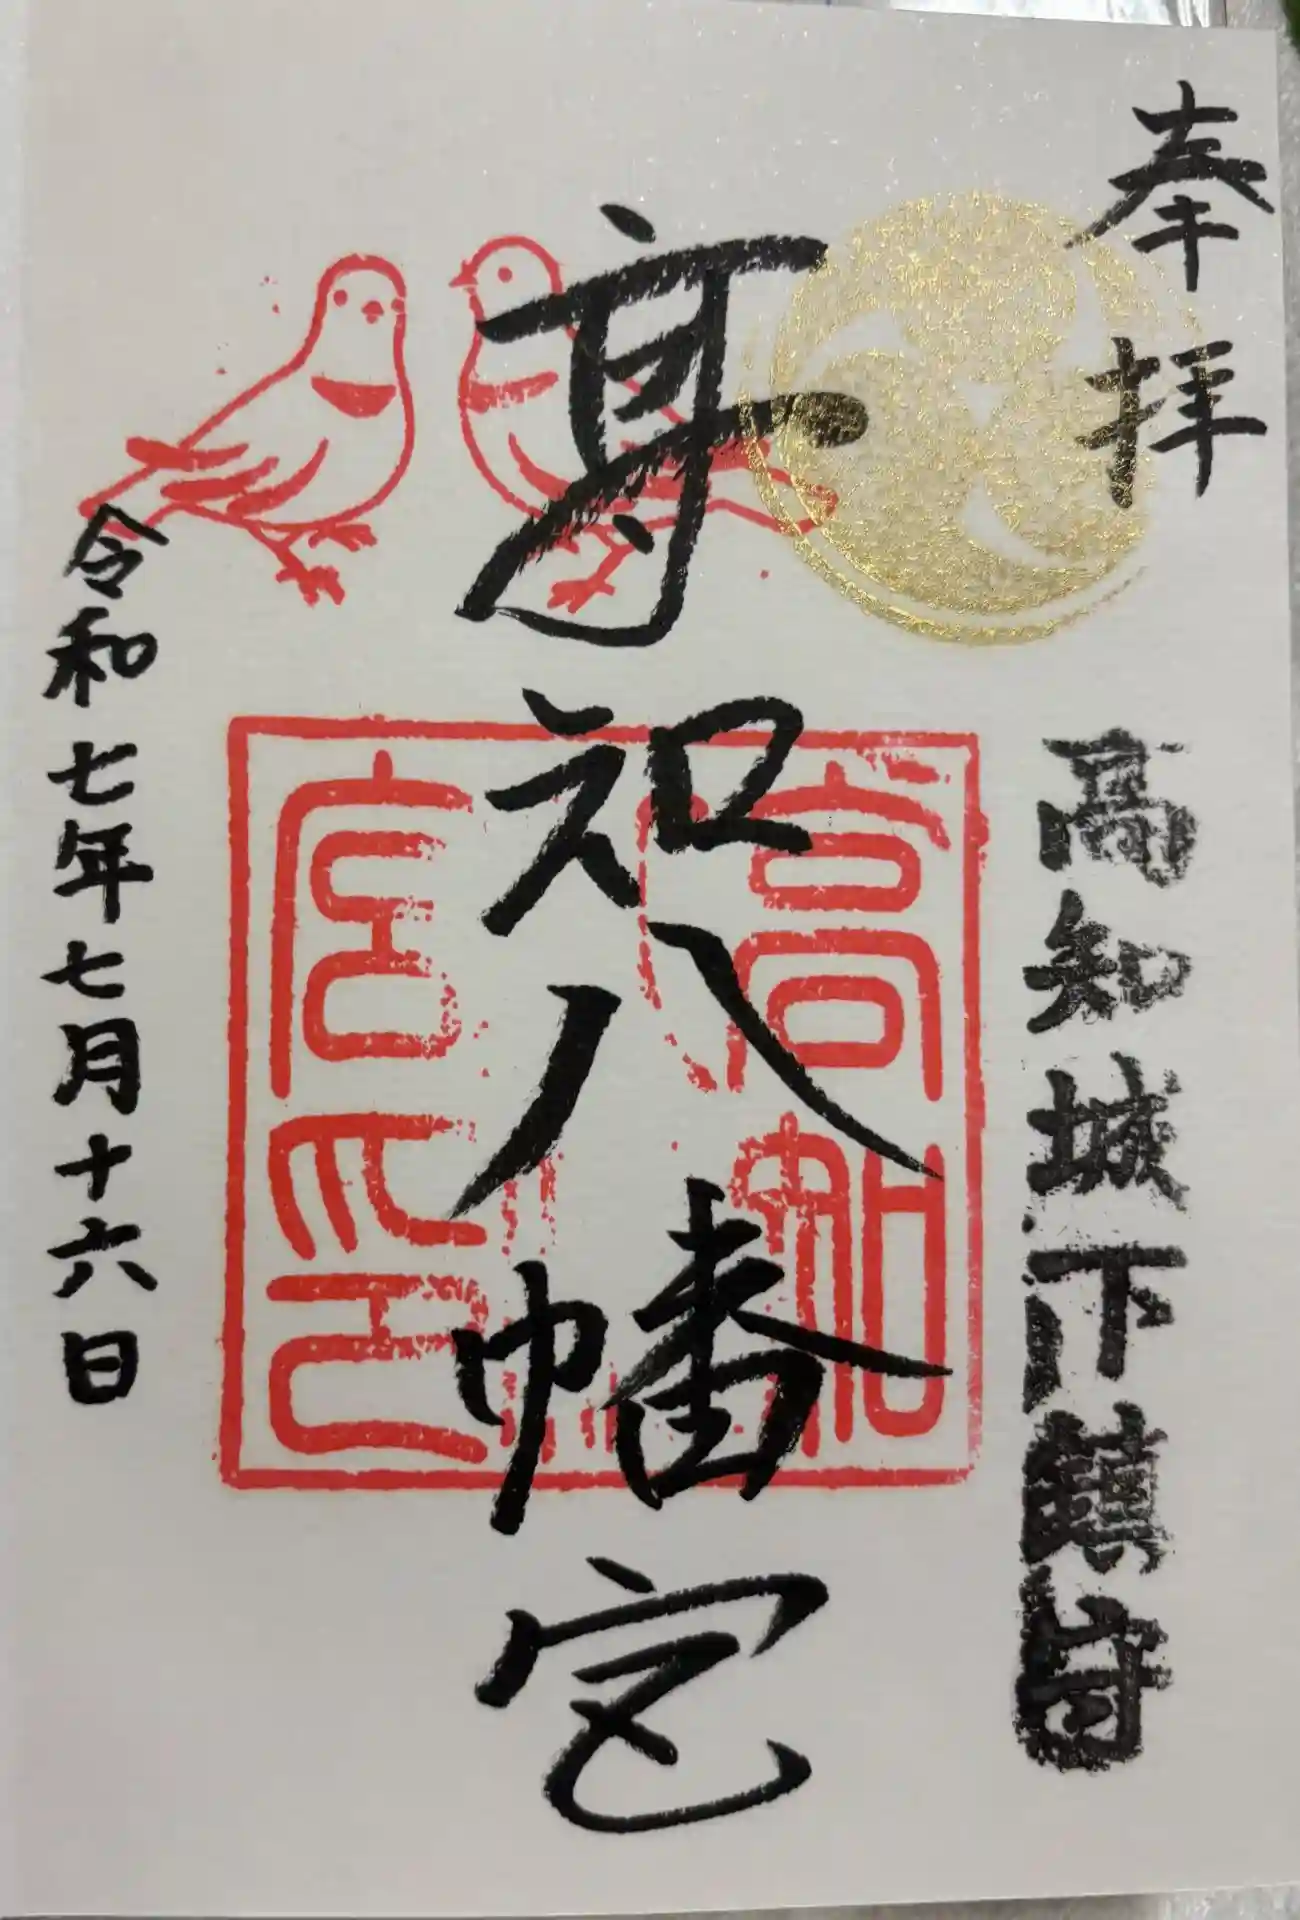 奉拝
高知城下鎮守
高知八幡宮
高知八幡宮印
令和七年七月十六日